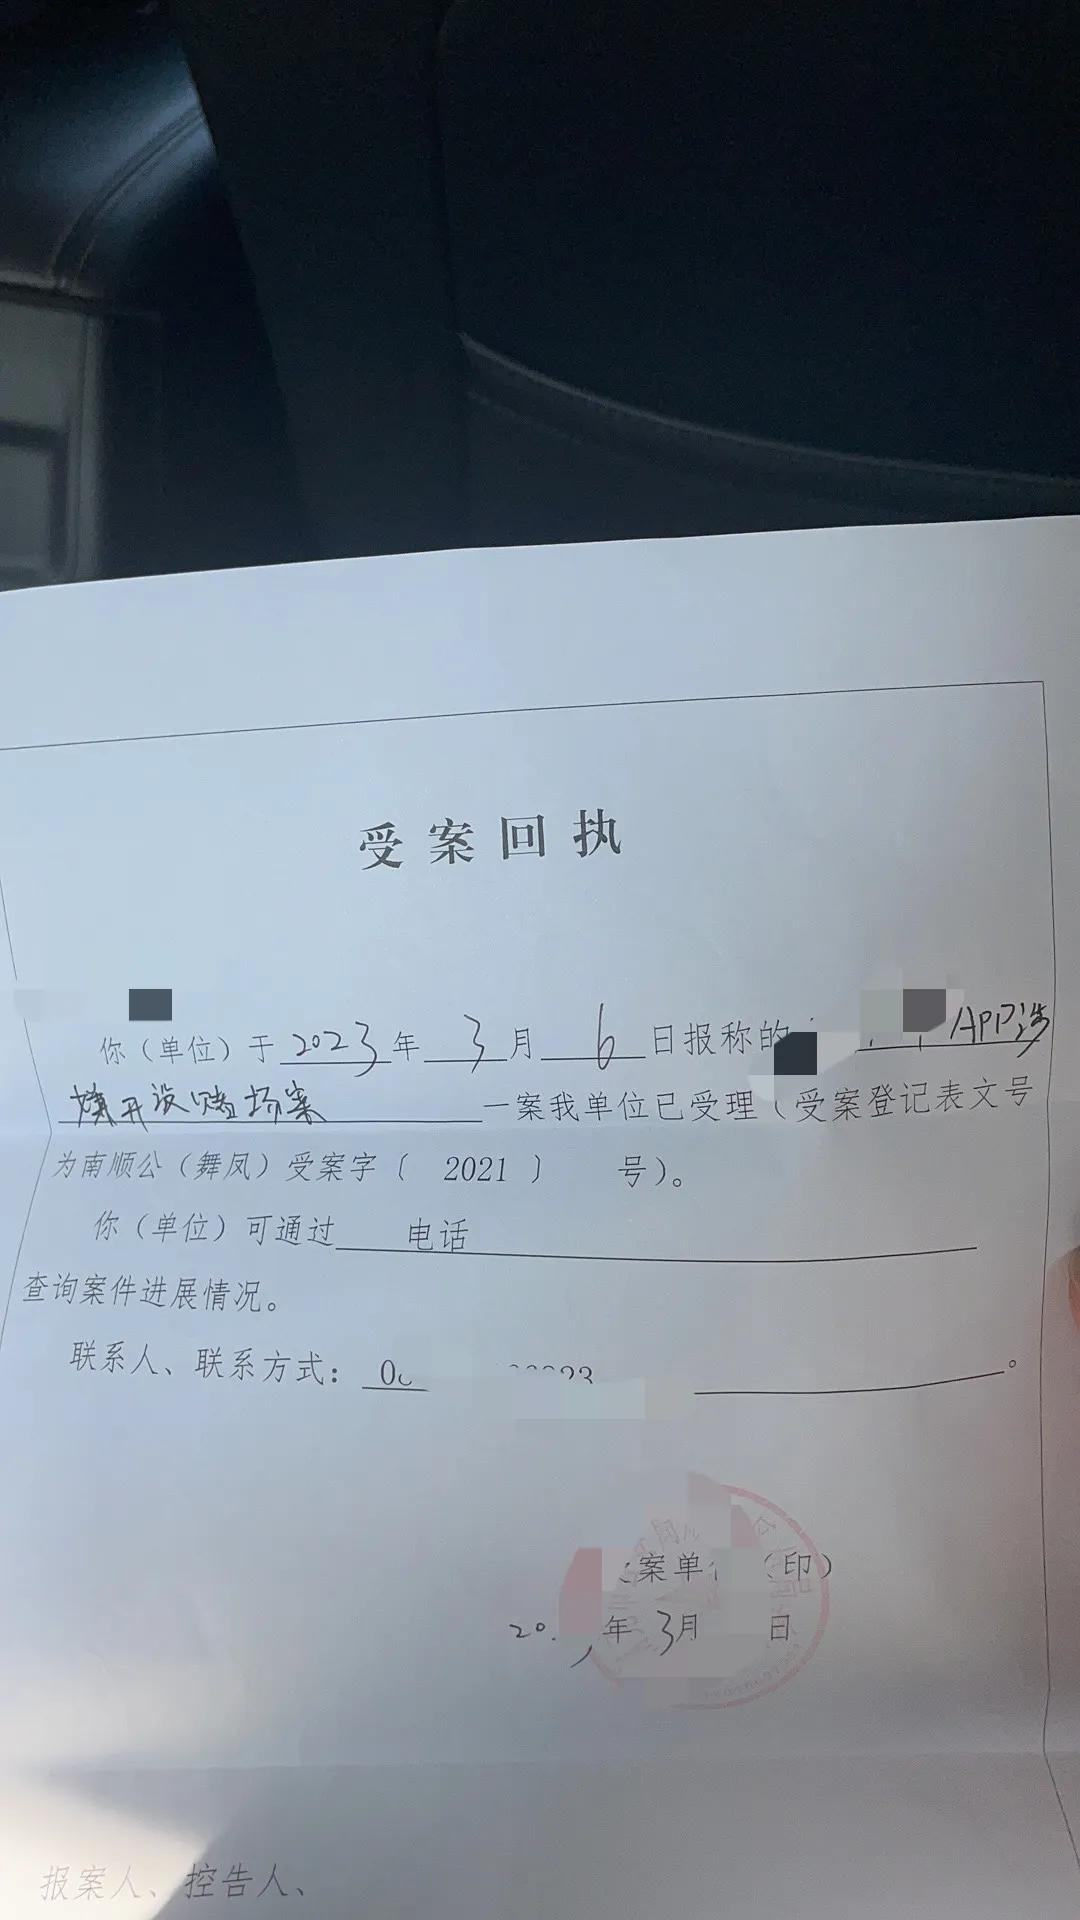 受案回执
你（单位）于2023年3月6日报称的 APP涉
嫌开设赌场案一案我单位已受理（受案登记表文号
为南顺公（舞凤）受案字〔 2021 〕 号）。
你（单位）可通过 电话
查询案件进展情况。
联系人、联系方式： 。
案单 （印）
20 年3月 日
报案人、控告人、